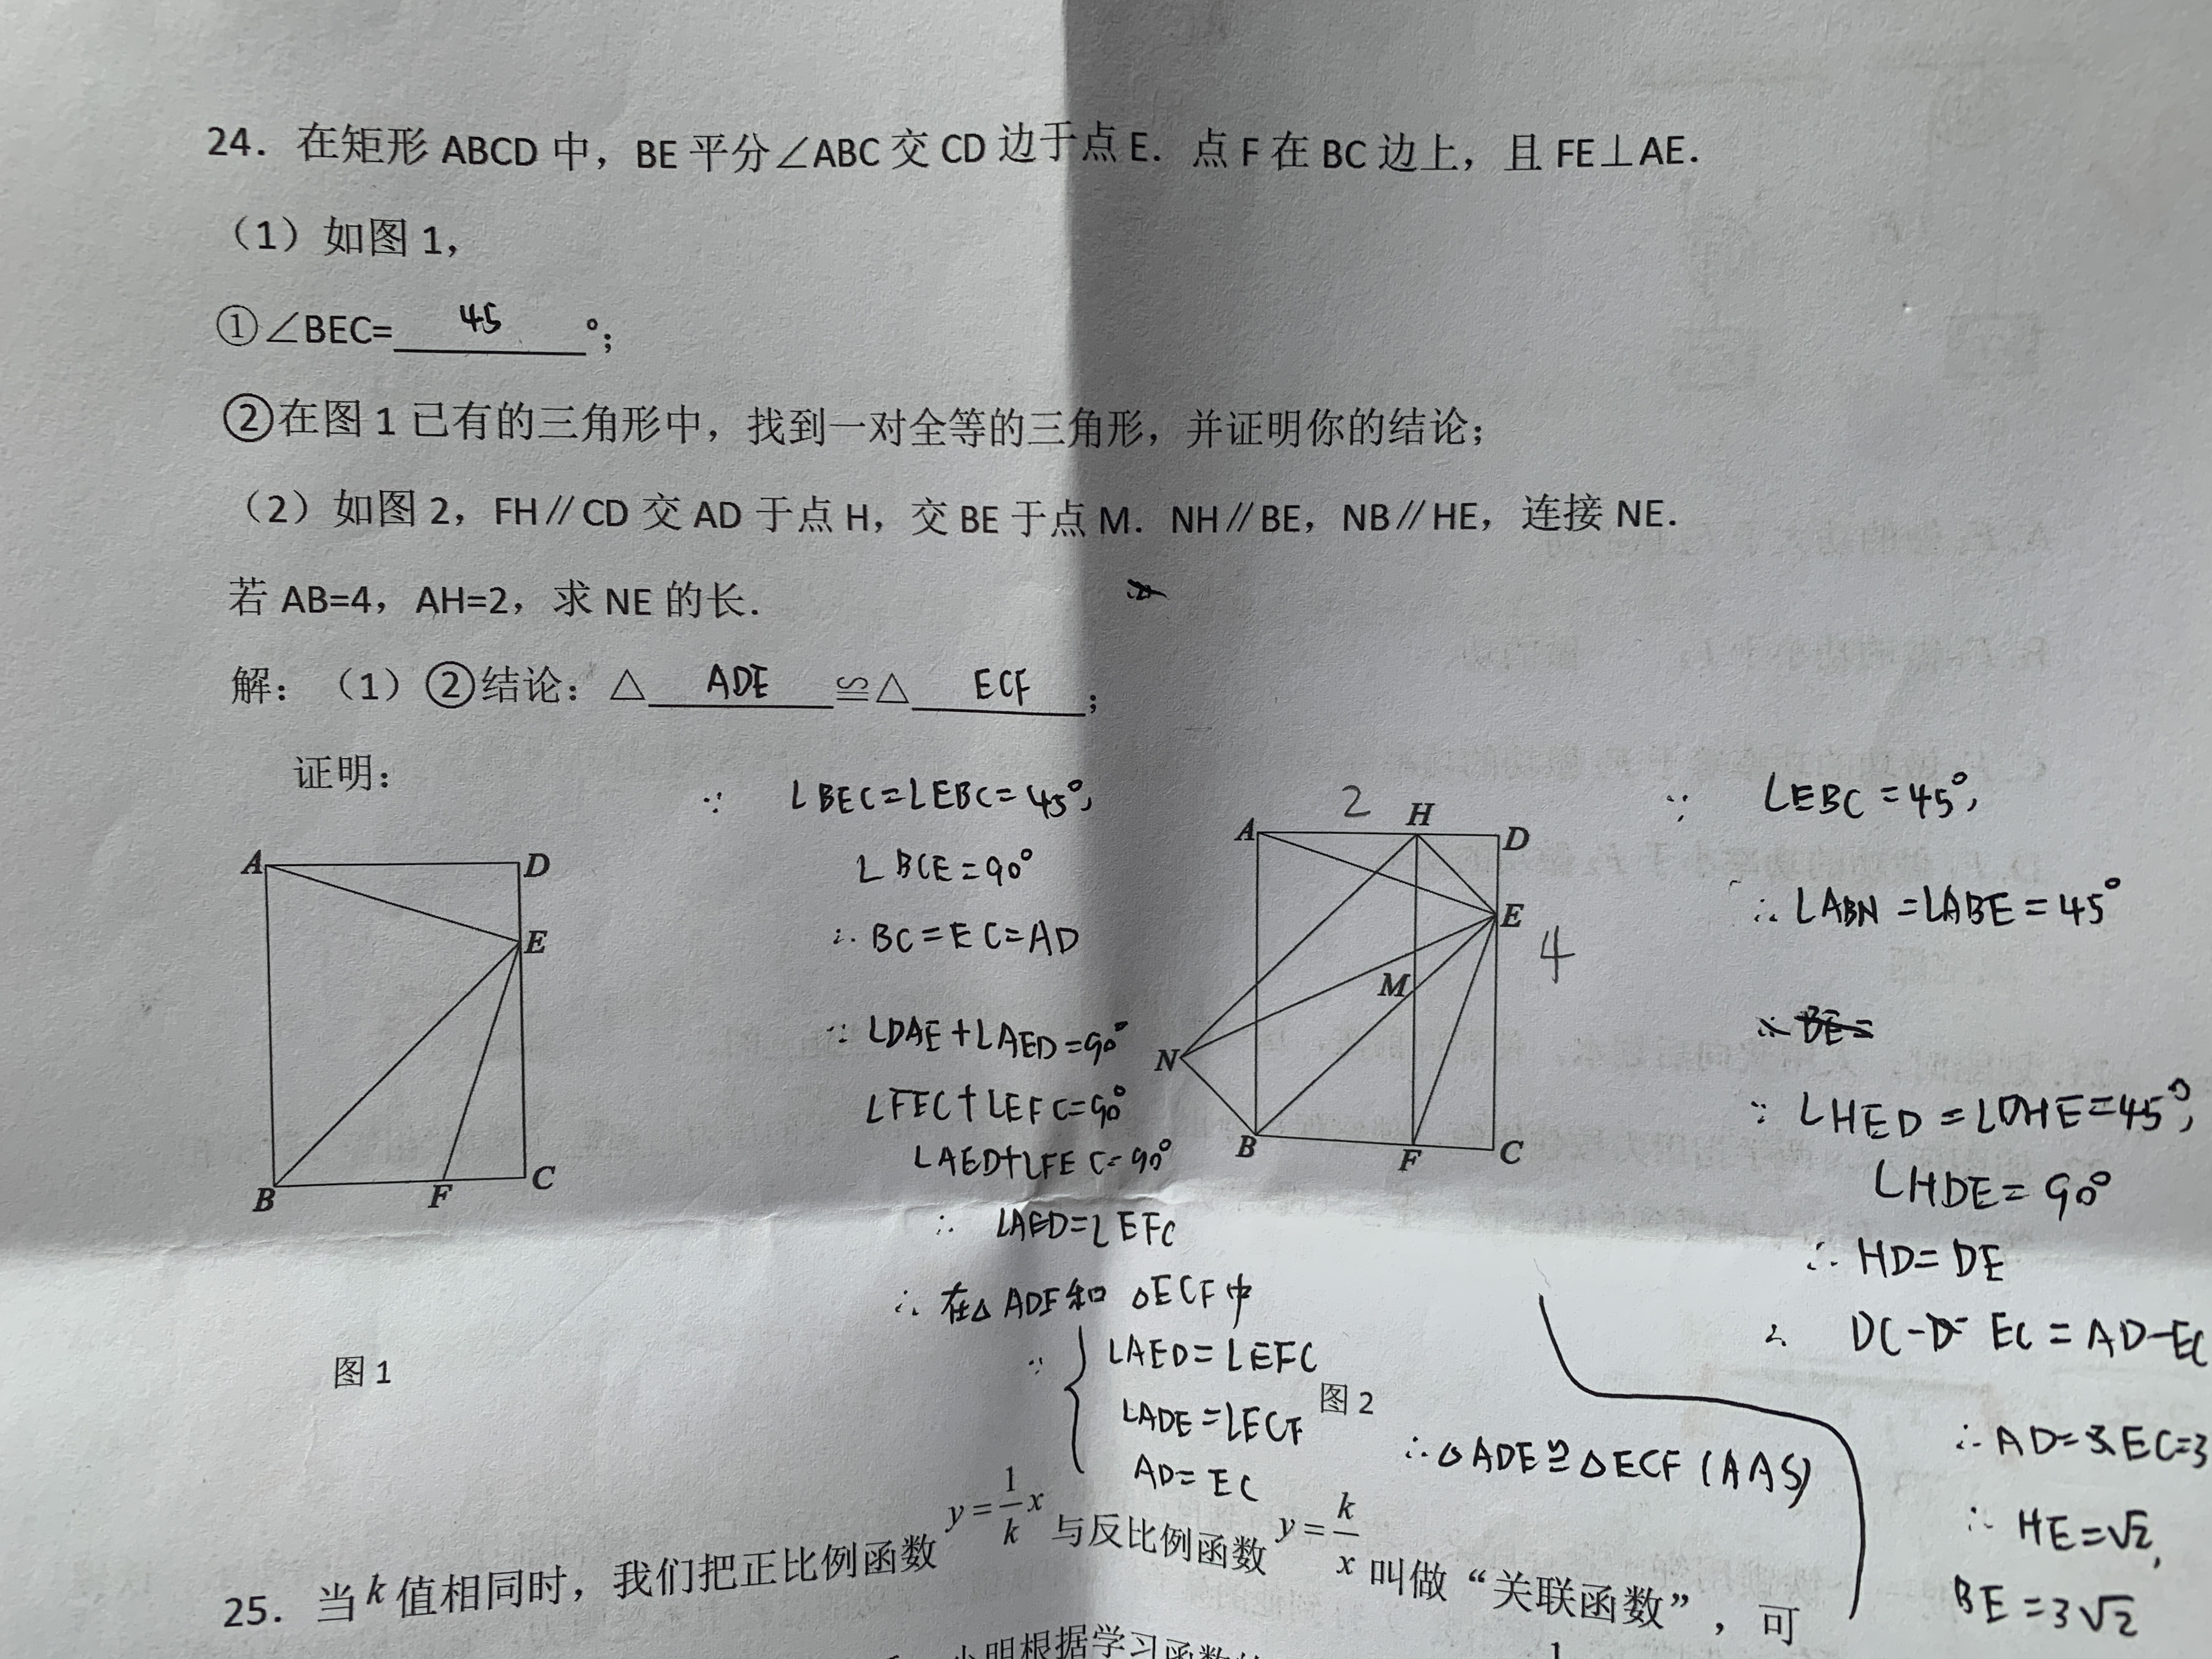 24. 在矩形 ABCD 中，BE 平分∠ABC 交 CD 边于点 E. 点 F 在 BC 边上，且 FE⊥AE.
（1）如图 1，
①∠BEC= 45 °；
②在图 1 已有的三角形中，找到一对全等的三角形，并证明你的结论；
（2）如图 2，FH∥CD 交 AD 于点 H，交 BE 于点 M. NH∥BE，NB∥HE，连接 NE.
若 AB=4，AH=2，求 NE 的长.
解：（1）②结论：△ ADE ≌△ ECF ；
证明：
∵ ∠BEC=∠EBC=45°,
∠BCE=90°
∴ BC=EC=AD
∵ ∠DAE+∠AED=90°
∠FEC+∠EFC=90°
∠AED+∠FEC=90°
∴ ∠AED=∠EFC
∴ 在△ADE和 △ECF中
∵ { ∠AED=∠EFC
∠ADE=∠ECF
AD=EC
∴△ADE≌△ECF (AAS)
A
D
E
B
F
C
图 1
2
A
H
D
E
4
M
N
B
F
C
图 2
∵ ∠EBC=45°,
∴ ∠ABN=∠ABE=45°
∵ ∠HED=∠DHE=45°,
∠HDE=90°
∴ HD=DE
EC=AD-EC
∴ HE=√2,
BE=3√2
25. 当 k 值相同时，我们把正比例函数 y=1/k x 与反比例函数 y=k/x 叫做“关联函数”，可